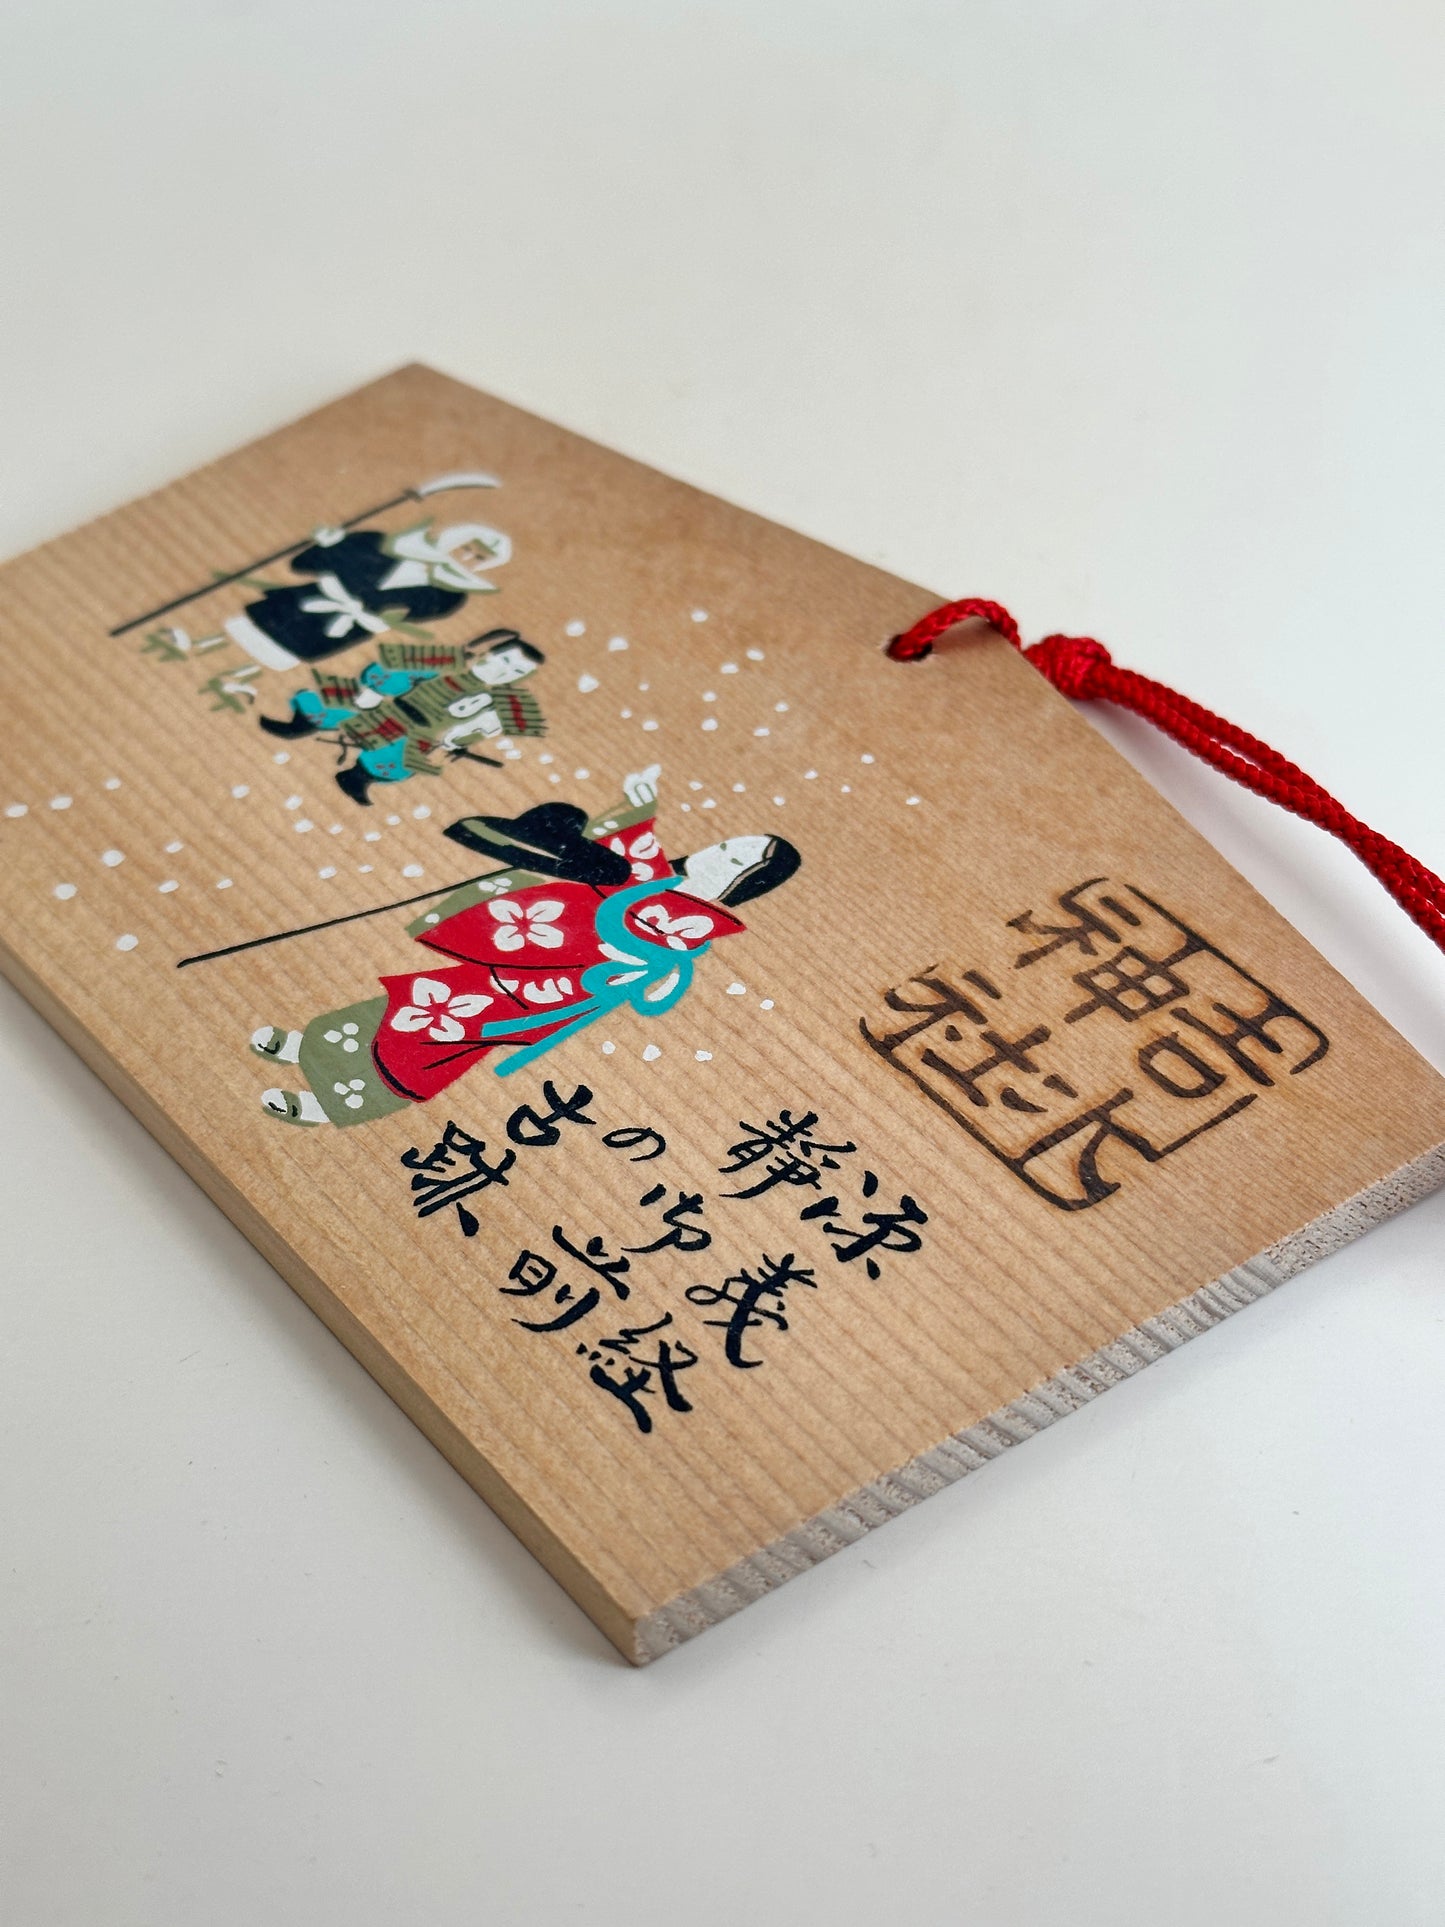 吉水
神社
源義経
静御前
の古跡